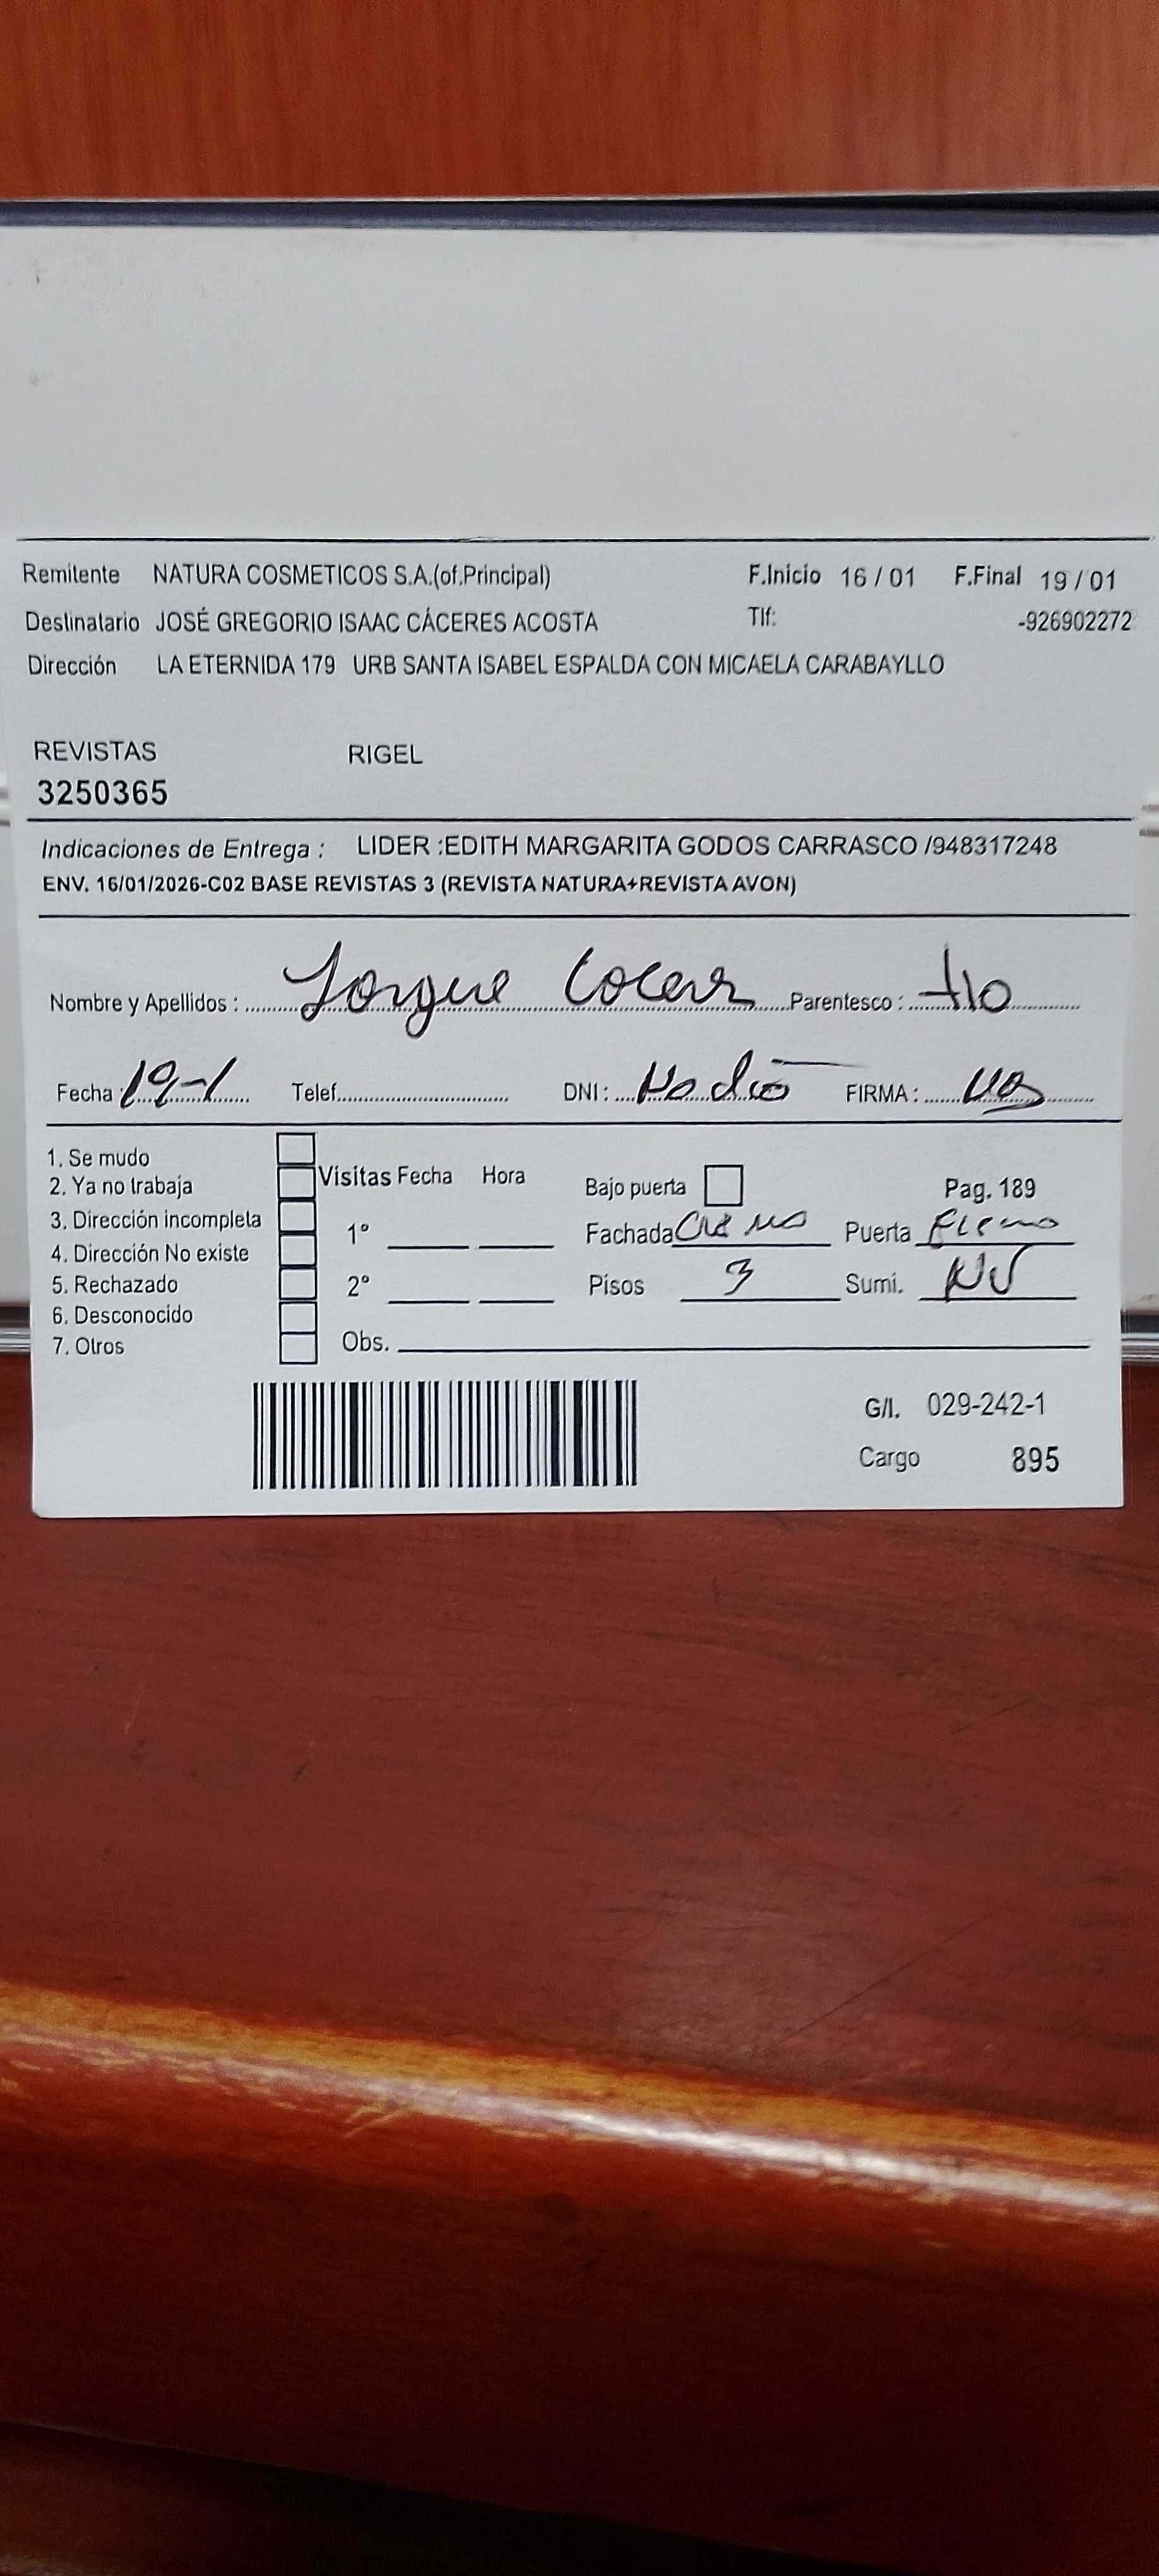 Remitente NATURA COSMETICOS S.A.(of.Principal) F.Inicio 16 / 01 F.Final 19 / 01
Destinatario JOSÉ GREGORIO ISAAC CÁCERES ACOSTA Tlf: -926902272
Dirección LA ETERNIDA 179 URB SANTA ISABEL ESPALDA CON MICAELA CARABAYLLO
REVISTAS RIGEL
3250365
Indicaciones de Entrega : LIDER :EDITH MARGARITA GODOS CARRASCO /948317248
ENV. 16/01/2026-C02 BASE REVISTAS 3 (REVISTA NATURA+REVISTA AVON)
Nombre y Apellidos : Jorgue Parentesco : tio
Fecha : 19-1 Telef. DNI : No dio FIRMA :
1. Se mudo
2. Ya no trabaja
3. Dirección incompleta
4. Dirección No existe
5. Rechazado
6. Desconocido
7. Otros
Visitas Fecha Hora
1°
2°
Obs.
Bajo puerta Pag. 189
Fachada Puerta
Pisos 3 Sumi.
G/I. 029-242-1
Cargo 895